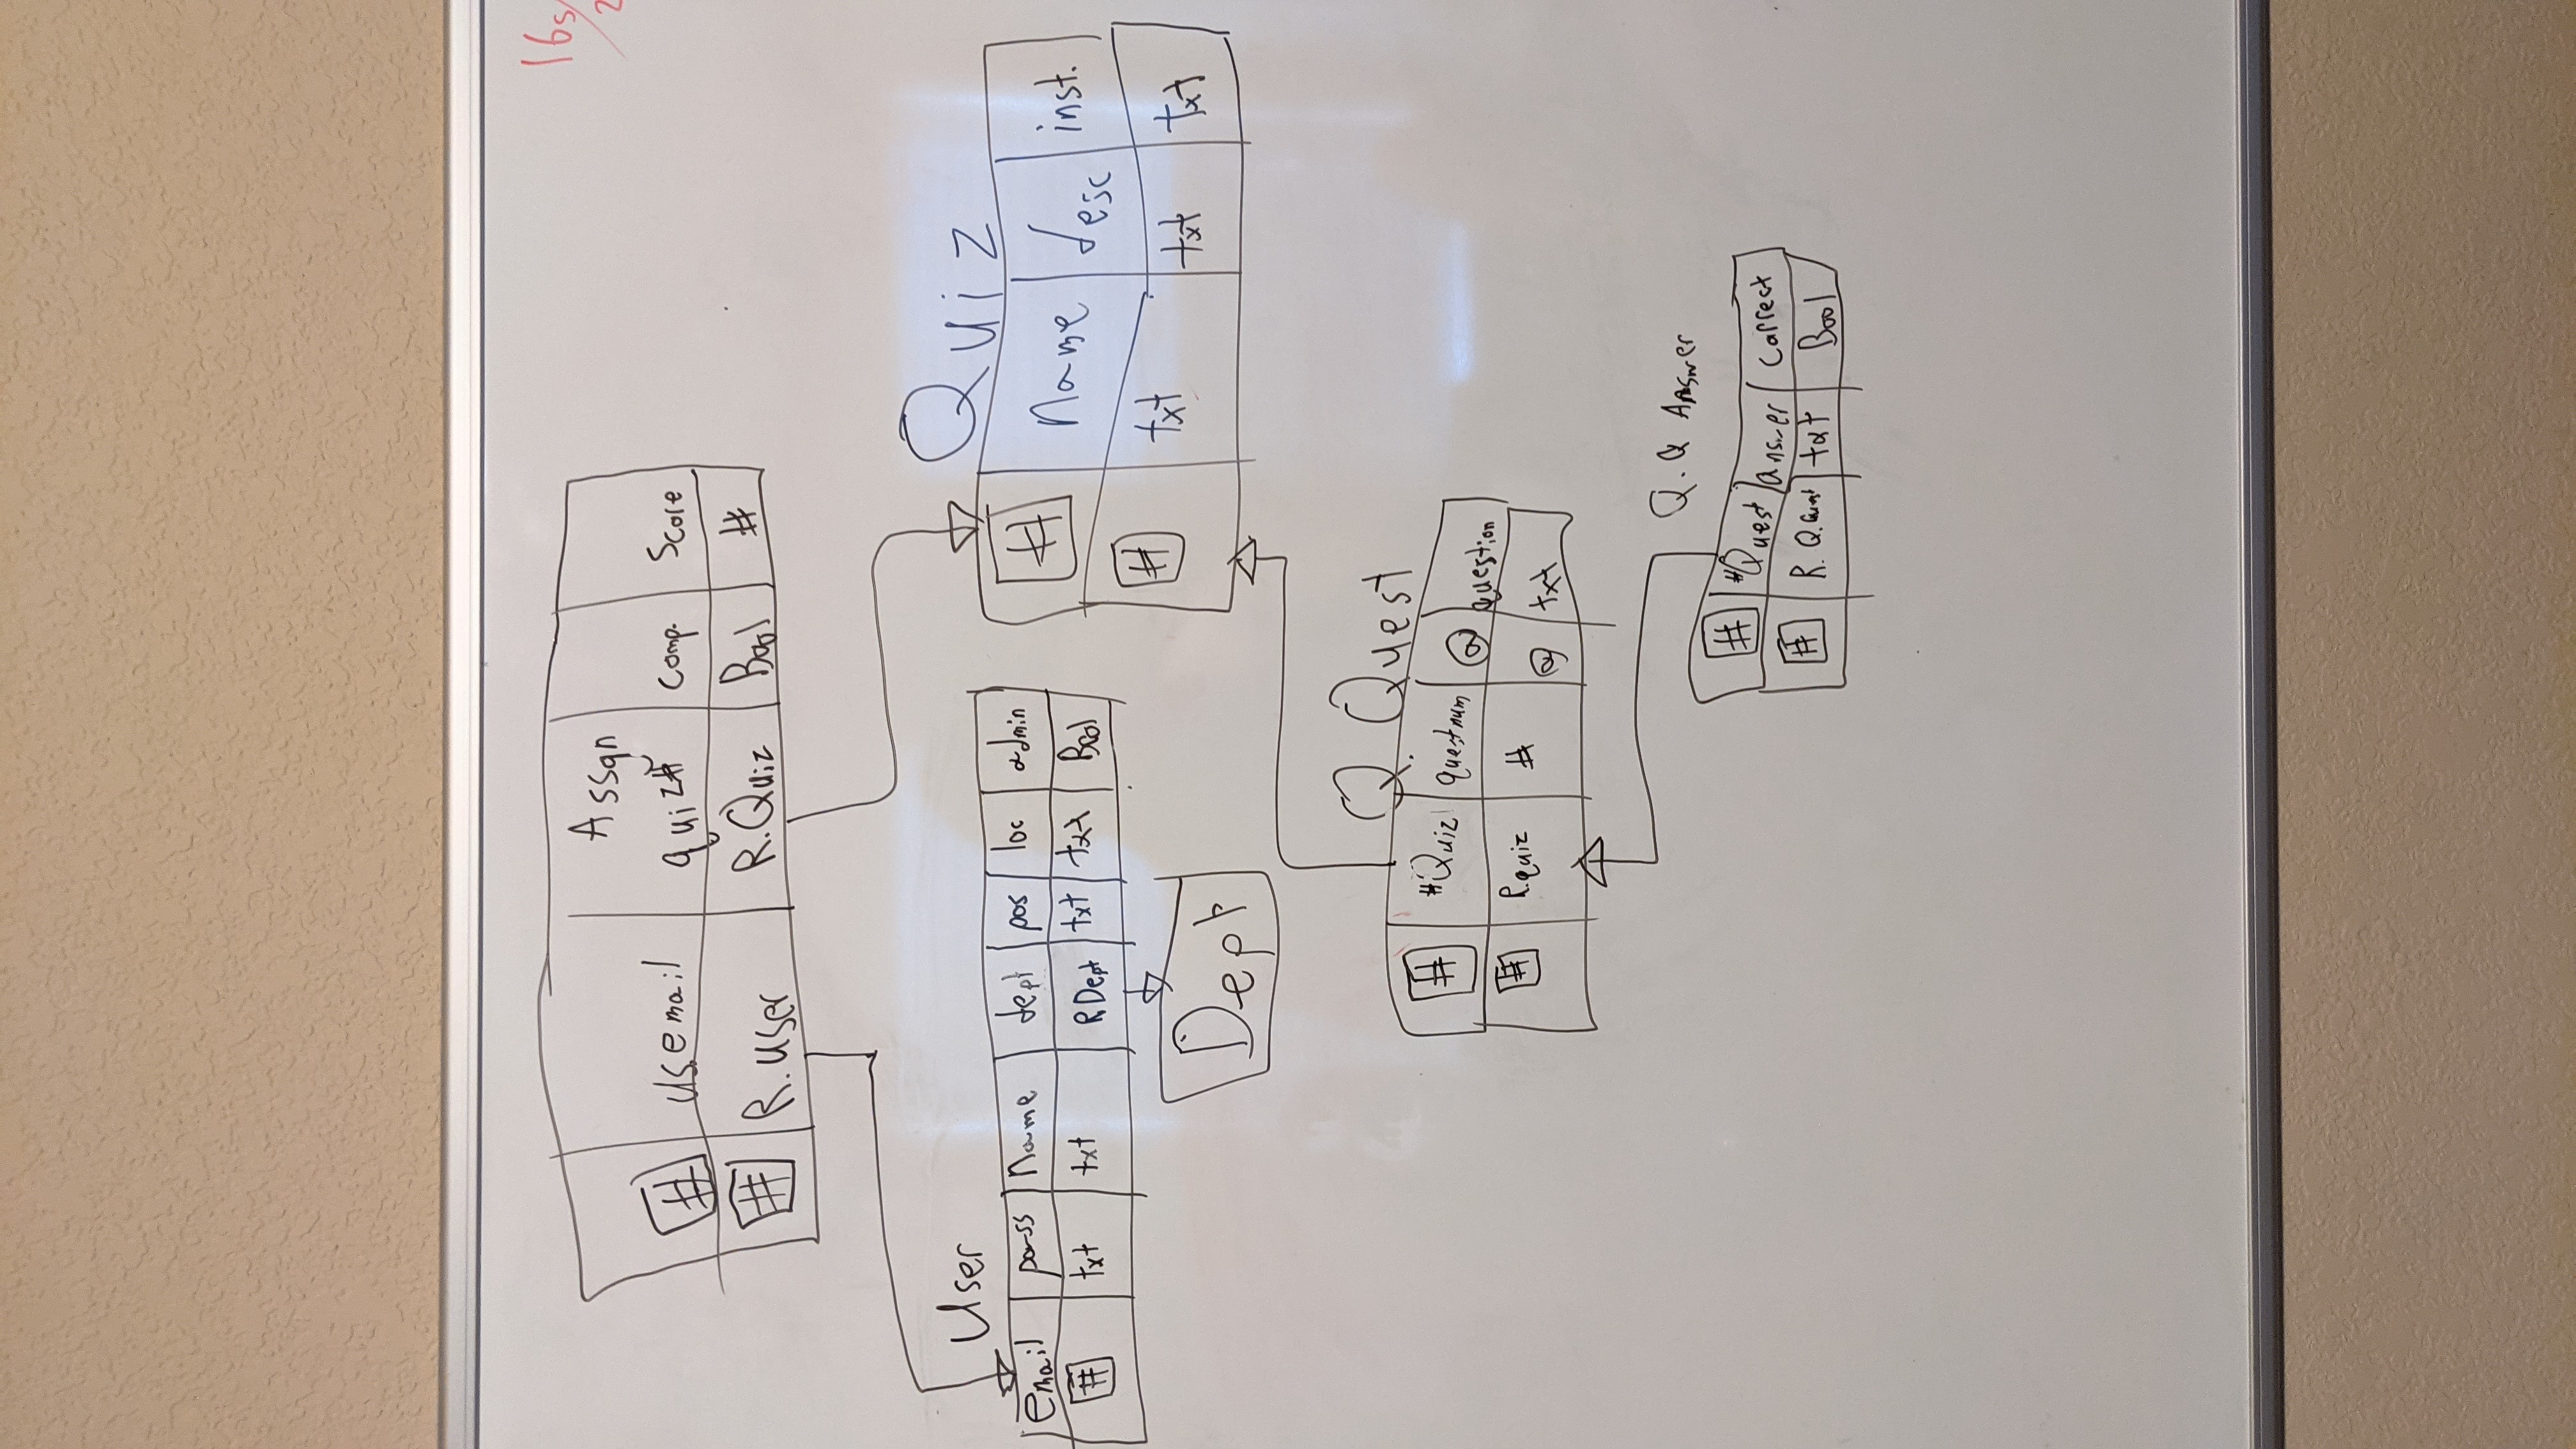 16s/
2
Assgn
# | us.email | quiz# | comp. | Score
# | R.user | R.Quiz | Bool | #
User
email | pass | Name | dept | pos | loc | admin
# | txt | txt | RDept | txt | txt | Bool
Dept
Quiz
# | Name | desc | inst.
# | txt | txt | txt
Q. Quest
# | #Quiz | questnum | @ | question
# | R.quiz | # | @ | txt
Q.Q Answer
# | #Quest | answer | Correct
# | R. Q.Quest | txt | Bool